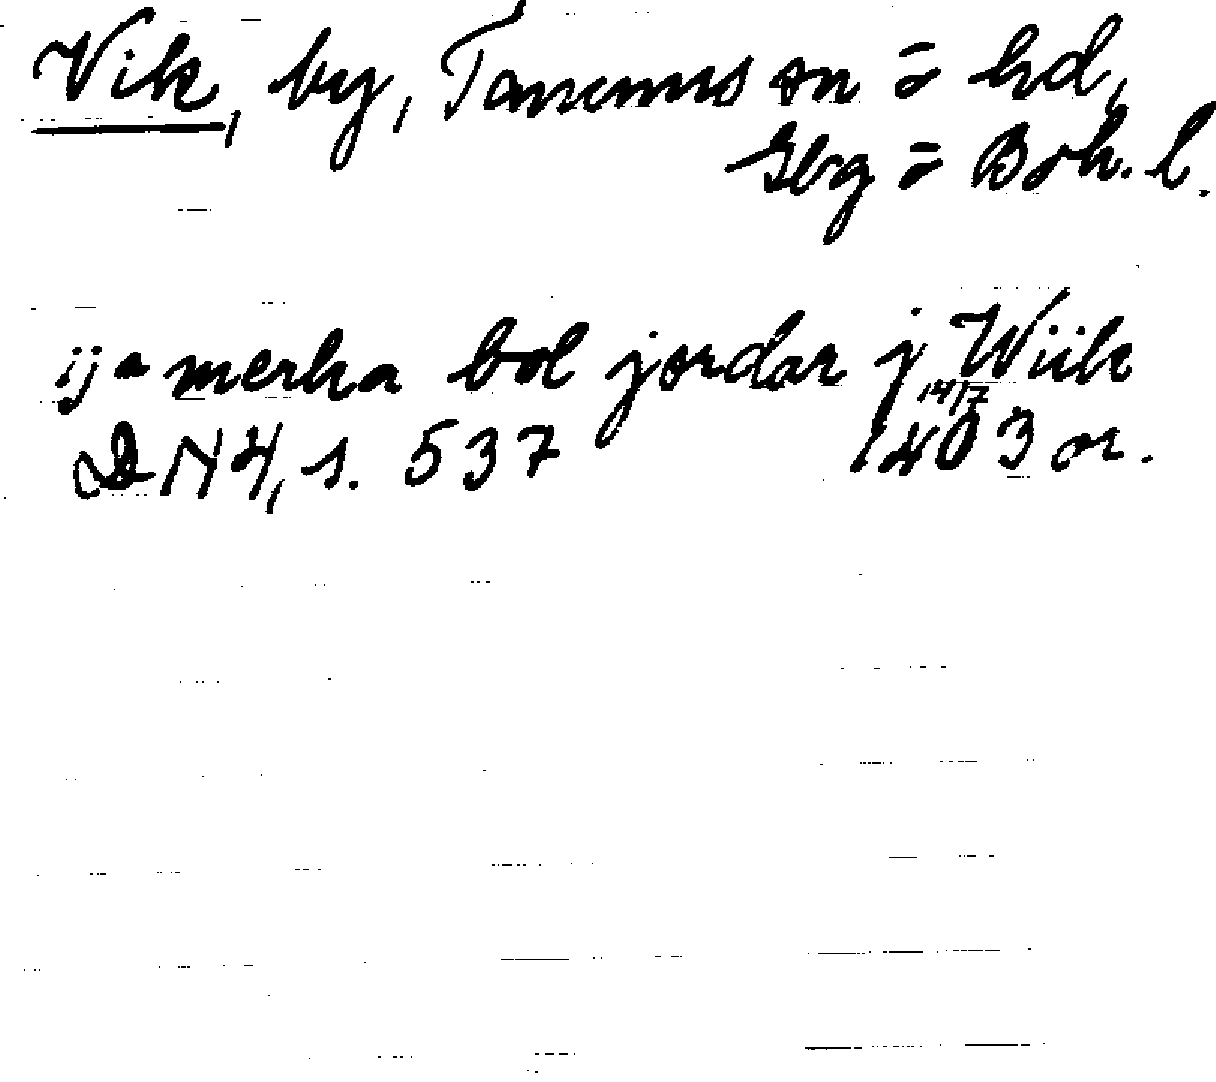 Vik, by, Tanums sn o hd,
Gbg o Boh. l.
ija merka bol jordar j Wiik
14/7
DN 4, s. 537 1403 or.